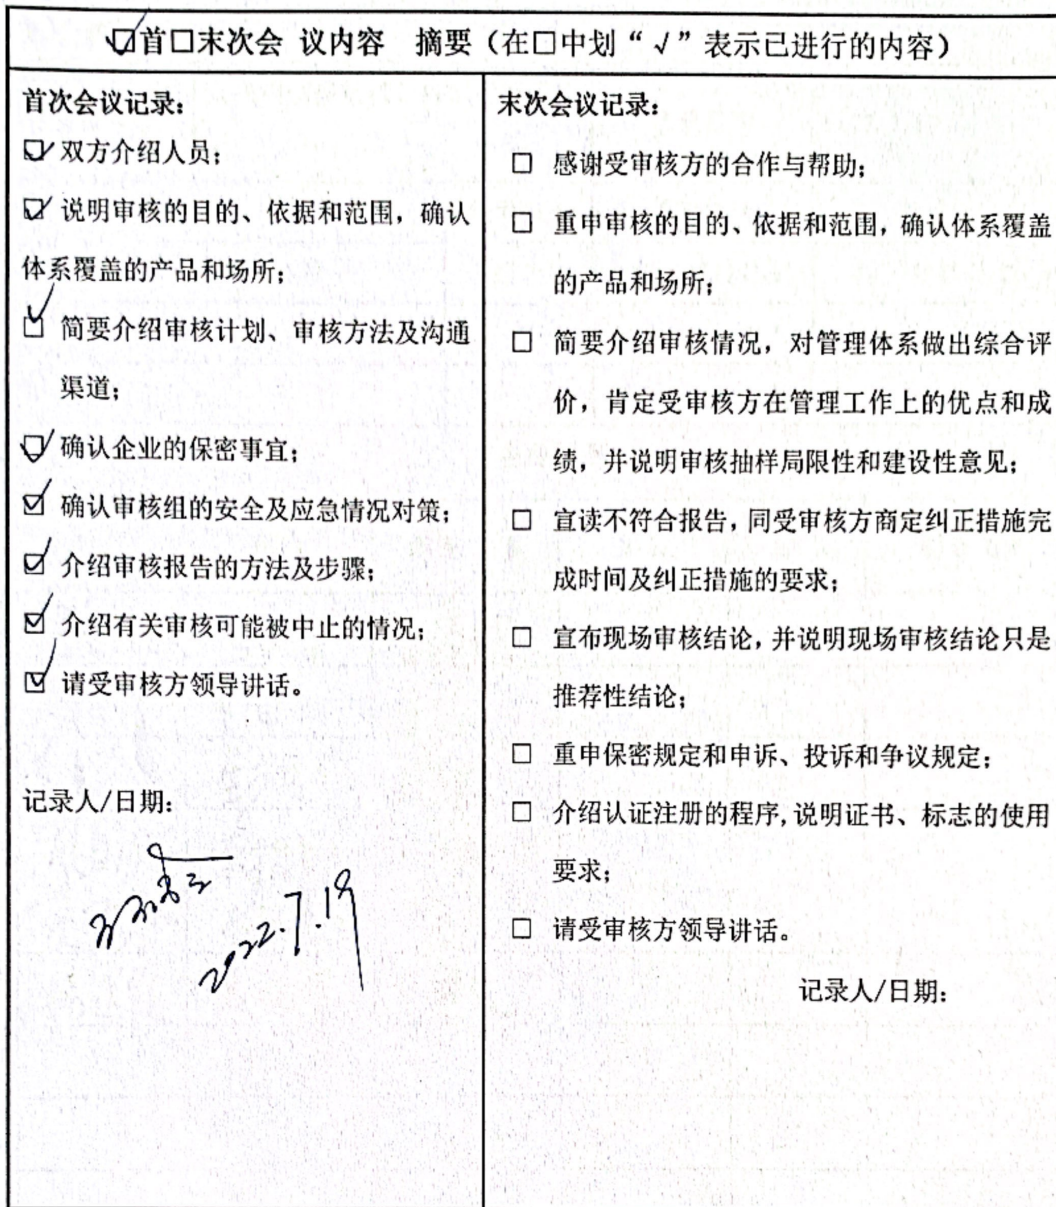 ☑首□末次会 议内容 摘要（在□中划“√”表示已进行的内容）
首次会议记录：
☑ 双方介绍人员；
☑ 说明审核的目的、依据和范围，确认
体系覆盖的产品和场所；
☑ 简要介绍审核计划、审核方法及沟通
渠道；
☑ 确认企业的保密事宜；
☑ 确认审核组的安全及应急情况对策；
☑ 介绍审核报告的方法及步骤；
☑ 介绍有关审核可能被中止的情况；
☑ 请受审核方领导讲话。
记录人/日期：
2022.7.19
末次会议记录：
□ 感谢受审核方的合作与帮助；
□ 重申审核的目的、依据和范围，确认体系覆盖
的产品和场所；
□ 简要介绍审核情况，对管理体系做出综合评
价，肯定受审核方在管理工作上的优点和成
绩，并说明审核抽样局限性和建设性意见；
□ 宣读不符合报告，同受审核方商定纠正措施完
成时间及纠正措施的要求；
□ 宣布现场审核结论，并说明现场审核结论只是
推荐性结论；
□ 重申保密规定和申诉、投诉和争议规定；
□ 介绍认证注册的程序,说明证书、标志的使用
要求；
□ 请受审核方领导讲话。
记录人/日期：